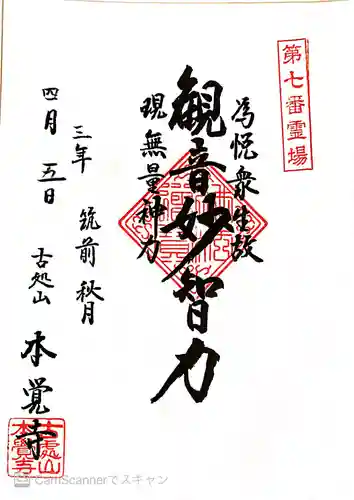 第七番霊場
為悦衆生故
観音妙智力
現無量神力
三年
四月五日
筑前秋月
古処山
本覺寺
古處山
本覺寺
CamScannerでスキャン